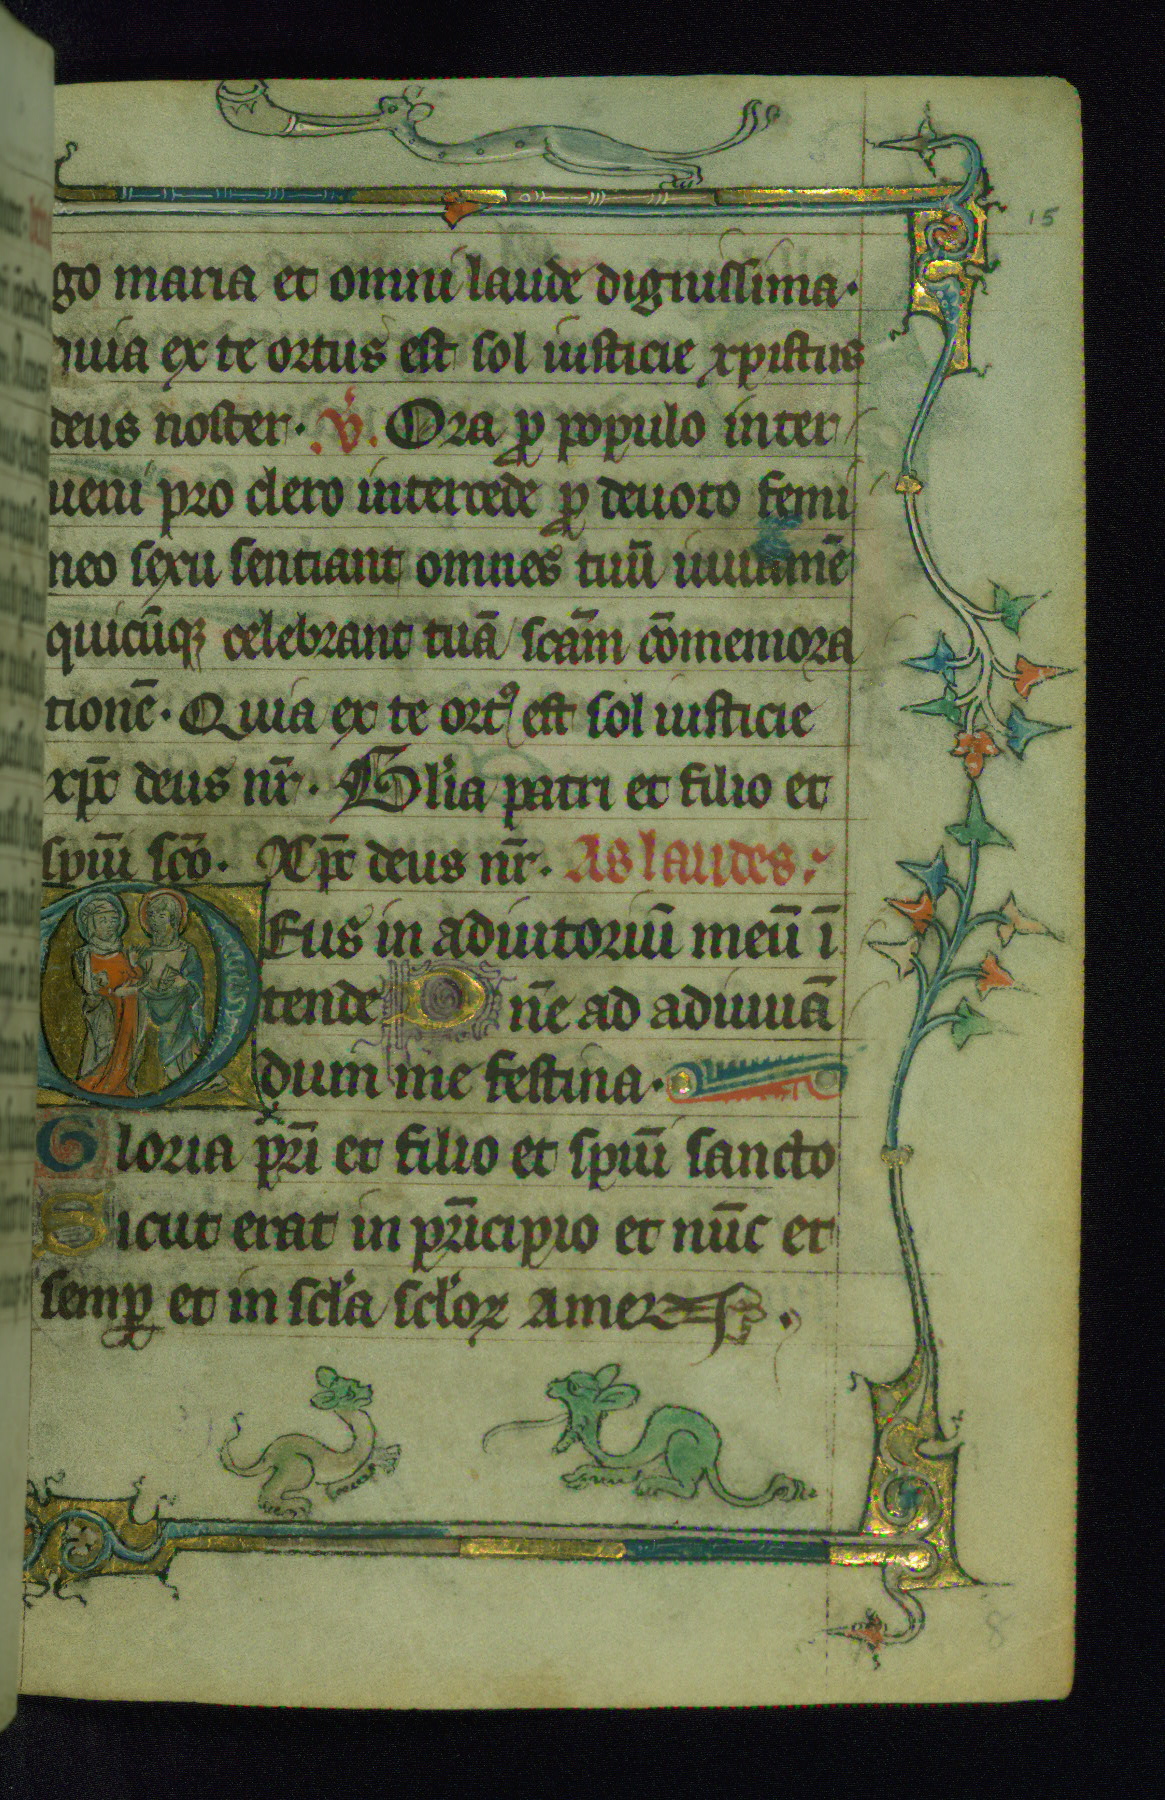 15
go maria et omni laude dignissima.
quia ex te ortus est sol iusticie xpistus
deus noster. v̄. Ora ꝓ populo inter
ueni pro clero intercede ꝓ deuoto femi
neo sexu sentiant omnes tuū iuuamē
quicūqꝫ celebrant tuā scām cōmemora
tionē. Quia ex te ortꝰ est sol iusticie
xp̄c deus nr̄. Gl'ia patri et filio et
spiū scō. Xp̄c deus nr̄. As laudes.
Deus in adiutoriū meū ī
tende Dn̄e ad adiuuā
dum me festina.
Gloria pr̄i et filio et spiū sancto
Sicut erat in pr̄icipio et nūc et
semꝑ et in scl'a scl'oꝝ amen.
8